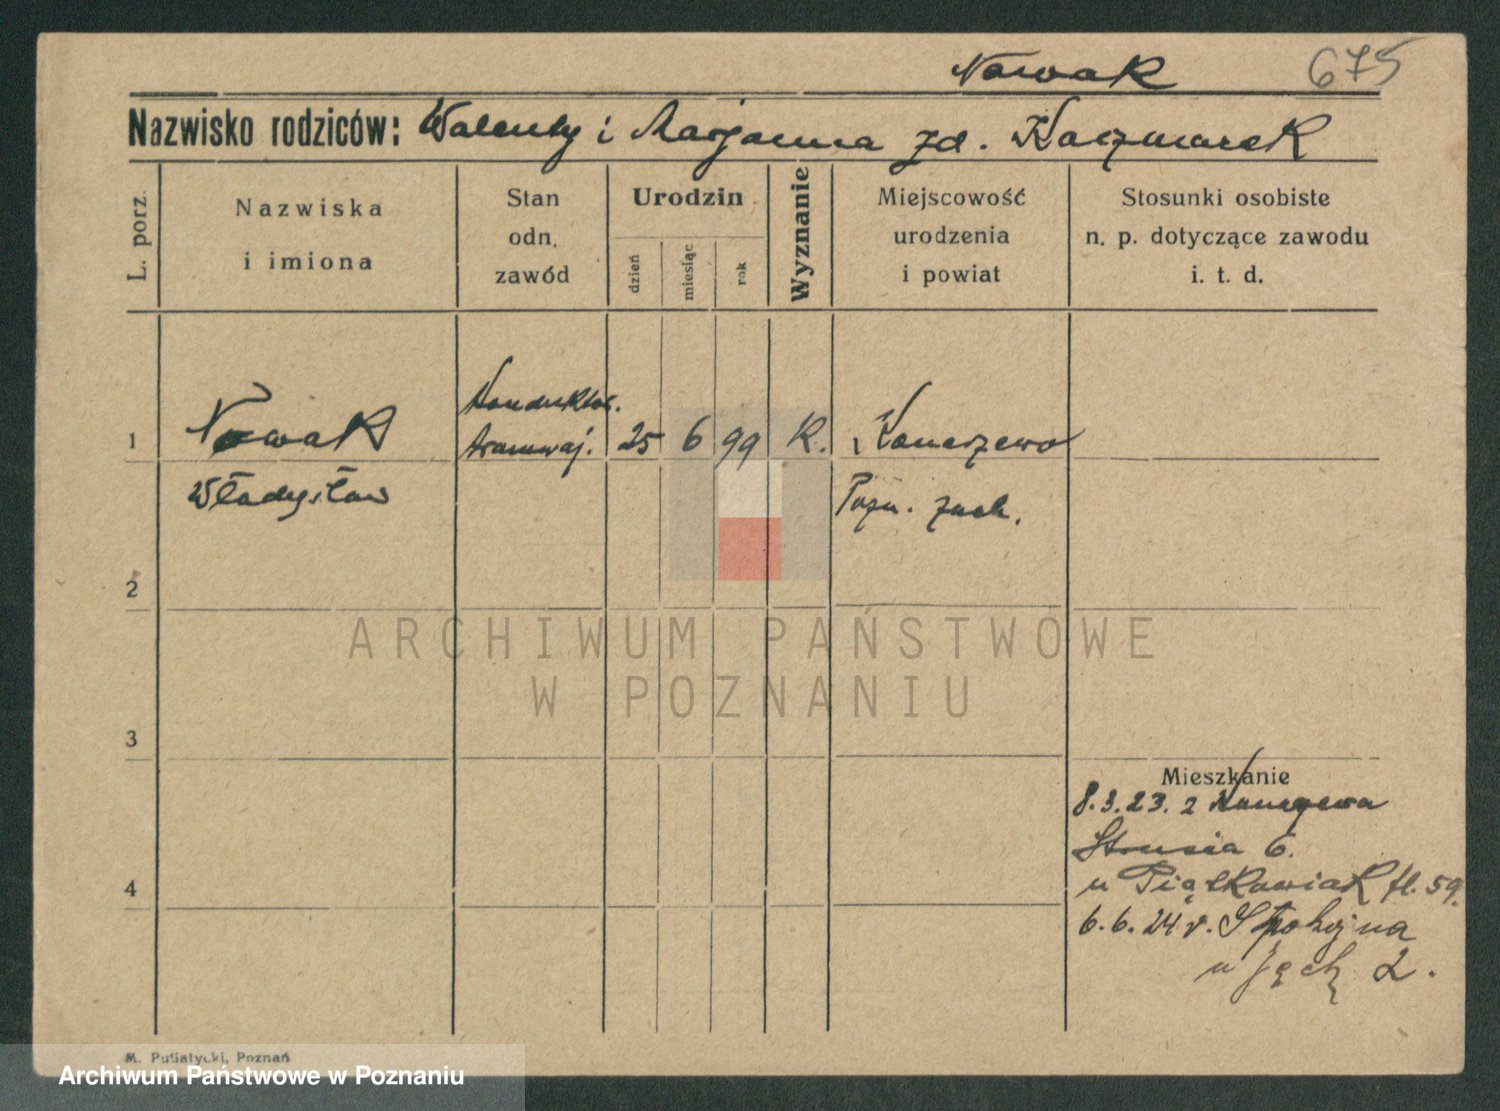 Nowak 675
Nazwisko rodziców: Walenty i Marjanna zd. Kaczmarek
L. porz.
Nazwiska
i imiona
Stan
odn.
zawód
Urodzin
dzień
miesiąc
rok
Wyznanie
Miejscowość
urodzenia
i powiat
Stosunki osobiste
n. p. dotyczące zawodu
i. t. d.
1 Nowak
Władysław
Konduktor.
tramwaj.
25 6 99 K.
Konarzewo
Pozn. zach.
2
ARCHIWUM PAŃSTWOWE
W POZNANIU
3
4
Mieszkanie
8.3.23. z Konarzewa
Strusia 6.
u Piątkowiak
59.
6.6.24 r. Spokojna
u 2.
M. Putiatycki, Poznań
Archiwum Państwowe w Poznaniu